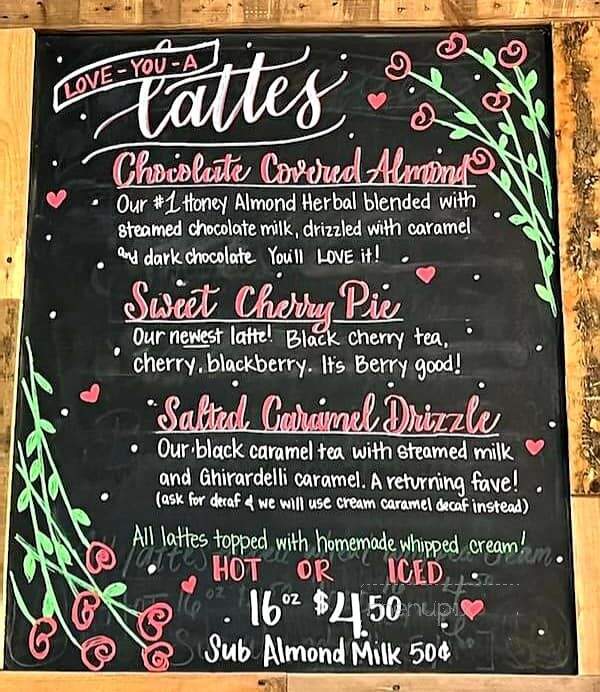 LOVE-YOU-A
Lattes
Chocolate Covered Almond
Our #1 Honey Almond Herbal blended with
steamed chocolate milk, drizzled with caramel
and dark chocolate You'll LOVE it!
Sweet Cherry Pie
Our newest latte! Black cherry tea,
cherry, blackberry. It's Berry good!
Salted Caramel Drizzle
Our black caramel tea with steamed milk
and Ghirardelli caramel. A returning fave!
(ask for decaf & we will use cream caramel decaf instead)
All lattes topped with homemade whipped cream!
HOT OR ICED
16oz $4.50
Sub Almond Milk 50¢